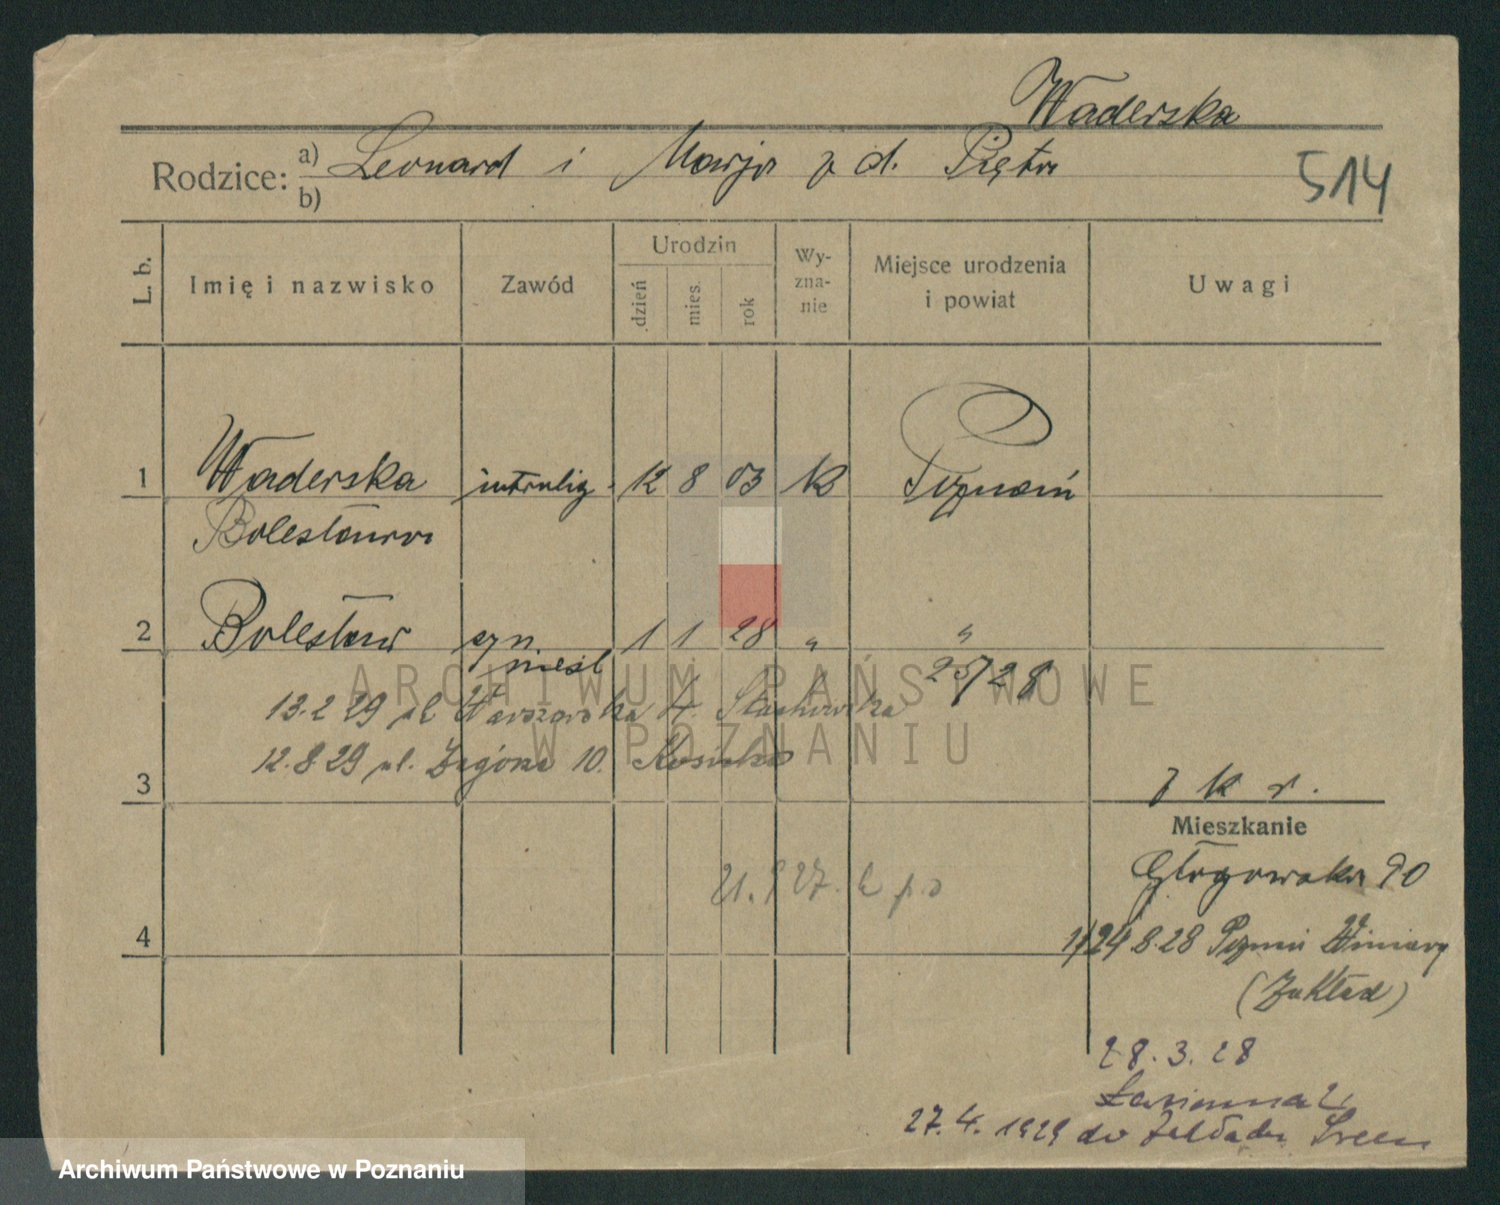 Waderska
Rodzice: a) Leonard i Marja z d. Pięta
b)
514
L. b.
Imię i nazwisko
Zawód
Urodzin
dzień
mies.
rok
Wy-
zna-
nie
Miejsce urodzenia
i powiat
Uwagi
1 Waderska introlig. 12 8 03 K Poznań
Bolesława
2 Bolesław syn 1 1 28 " "
nieśl 25/28
13.2 29 ul Warszawska 4. Stachowska
12.8.29 ul. Zagórze 10.
3
k r.
Mieszkanie
Głogowska 90
21. 27.
4
24 8.28 Poznań Winiary
(Zakład)
28.3.28
27.4.1929 do Zakładu Śrem
ARCHIWUM PAŃSTWOWE
W POZNANIU
Archiwum Państwowe w Poznaniu